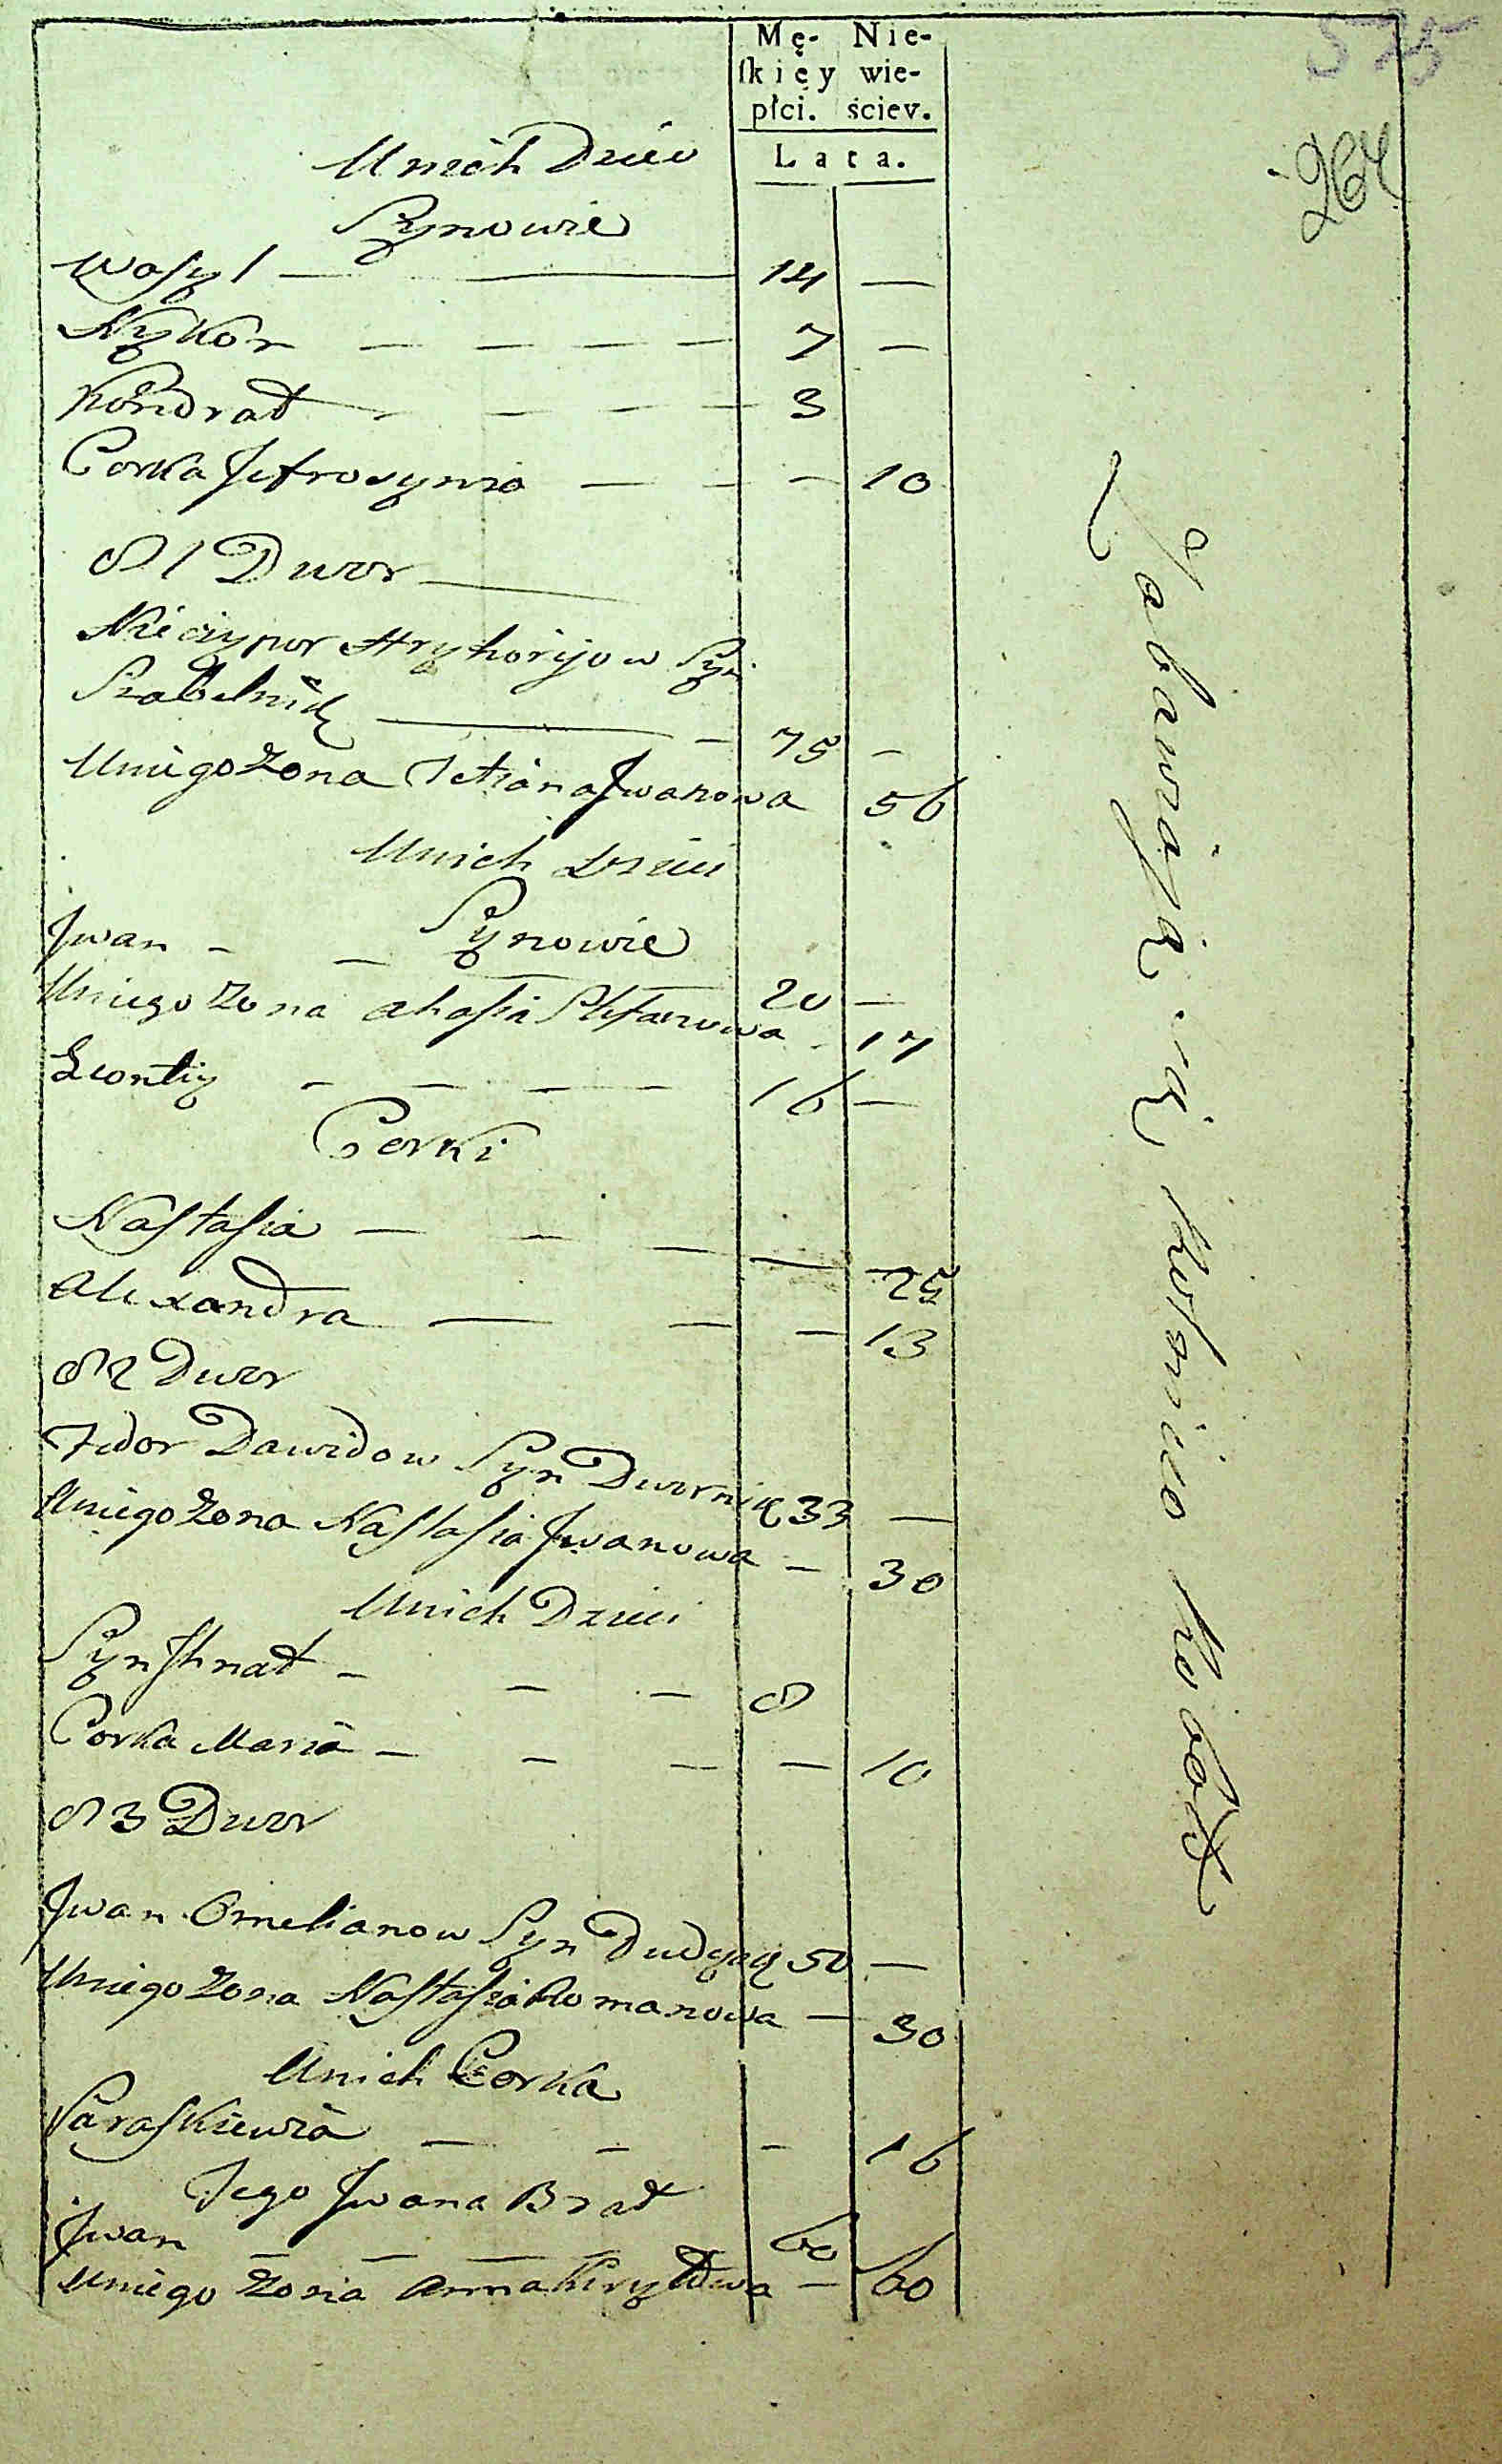 575
264
Mę- Nie-
ſkięy wie-
płci. ściey.
Lata.
Unich Dzieci
Synowie
Wasyl — 14 —
Nykor — — — — 7 —
Kondrat — — — 3
Corka Jefrosynia — — — 10
81 Dwor
Nieczypor Hryhorijow Syn
Szabelnik — 75 —
Uniego Zona Tetiana Jwanowa 56
Unich Dzieci
Synowie
Jwan — — 20 —
Uniego Zona Ahafia Stefanowa 17
Leontiy — — — — 16 —
Corki
Nastasia — — — — 25
Alexandra — — — 13
82 Dwor
Fedor Dawidow Syn Dwornik 33 —
Uniego Zona Nastasia Jwanowa — 30
Unich Dzieci
Syn Jhnat — — — 8
Corka Maria — — — — 10
83 Dwor
Jwan Omelianow Syn Dudyk 50 —
Uniego Zona Nastasia Romanowa — 30
Unich Corka
Paraskiewia — — — 16
Tego Jwana Brat
Jwan — — — 60
Uniego Zona Anna Kiryłowa — 60
Zabawiaią się koło robot